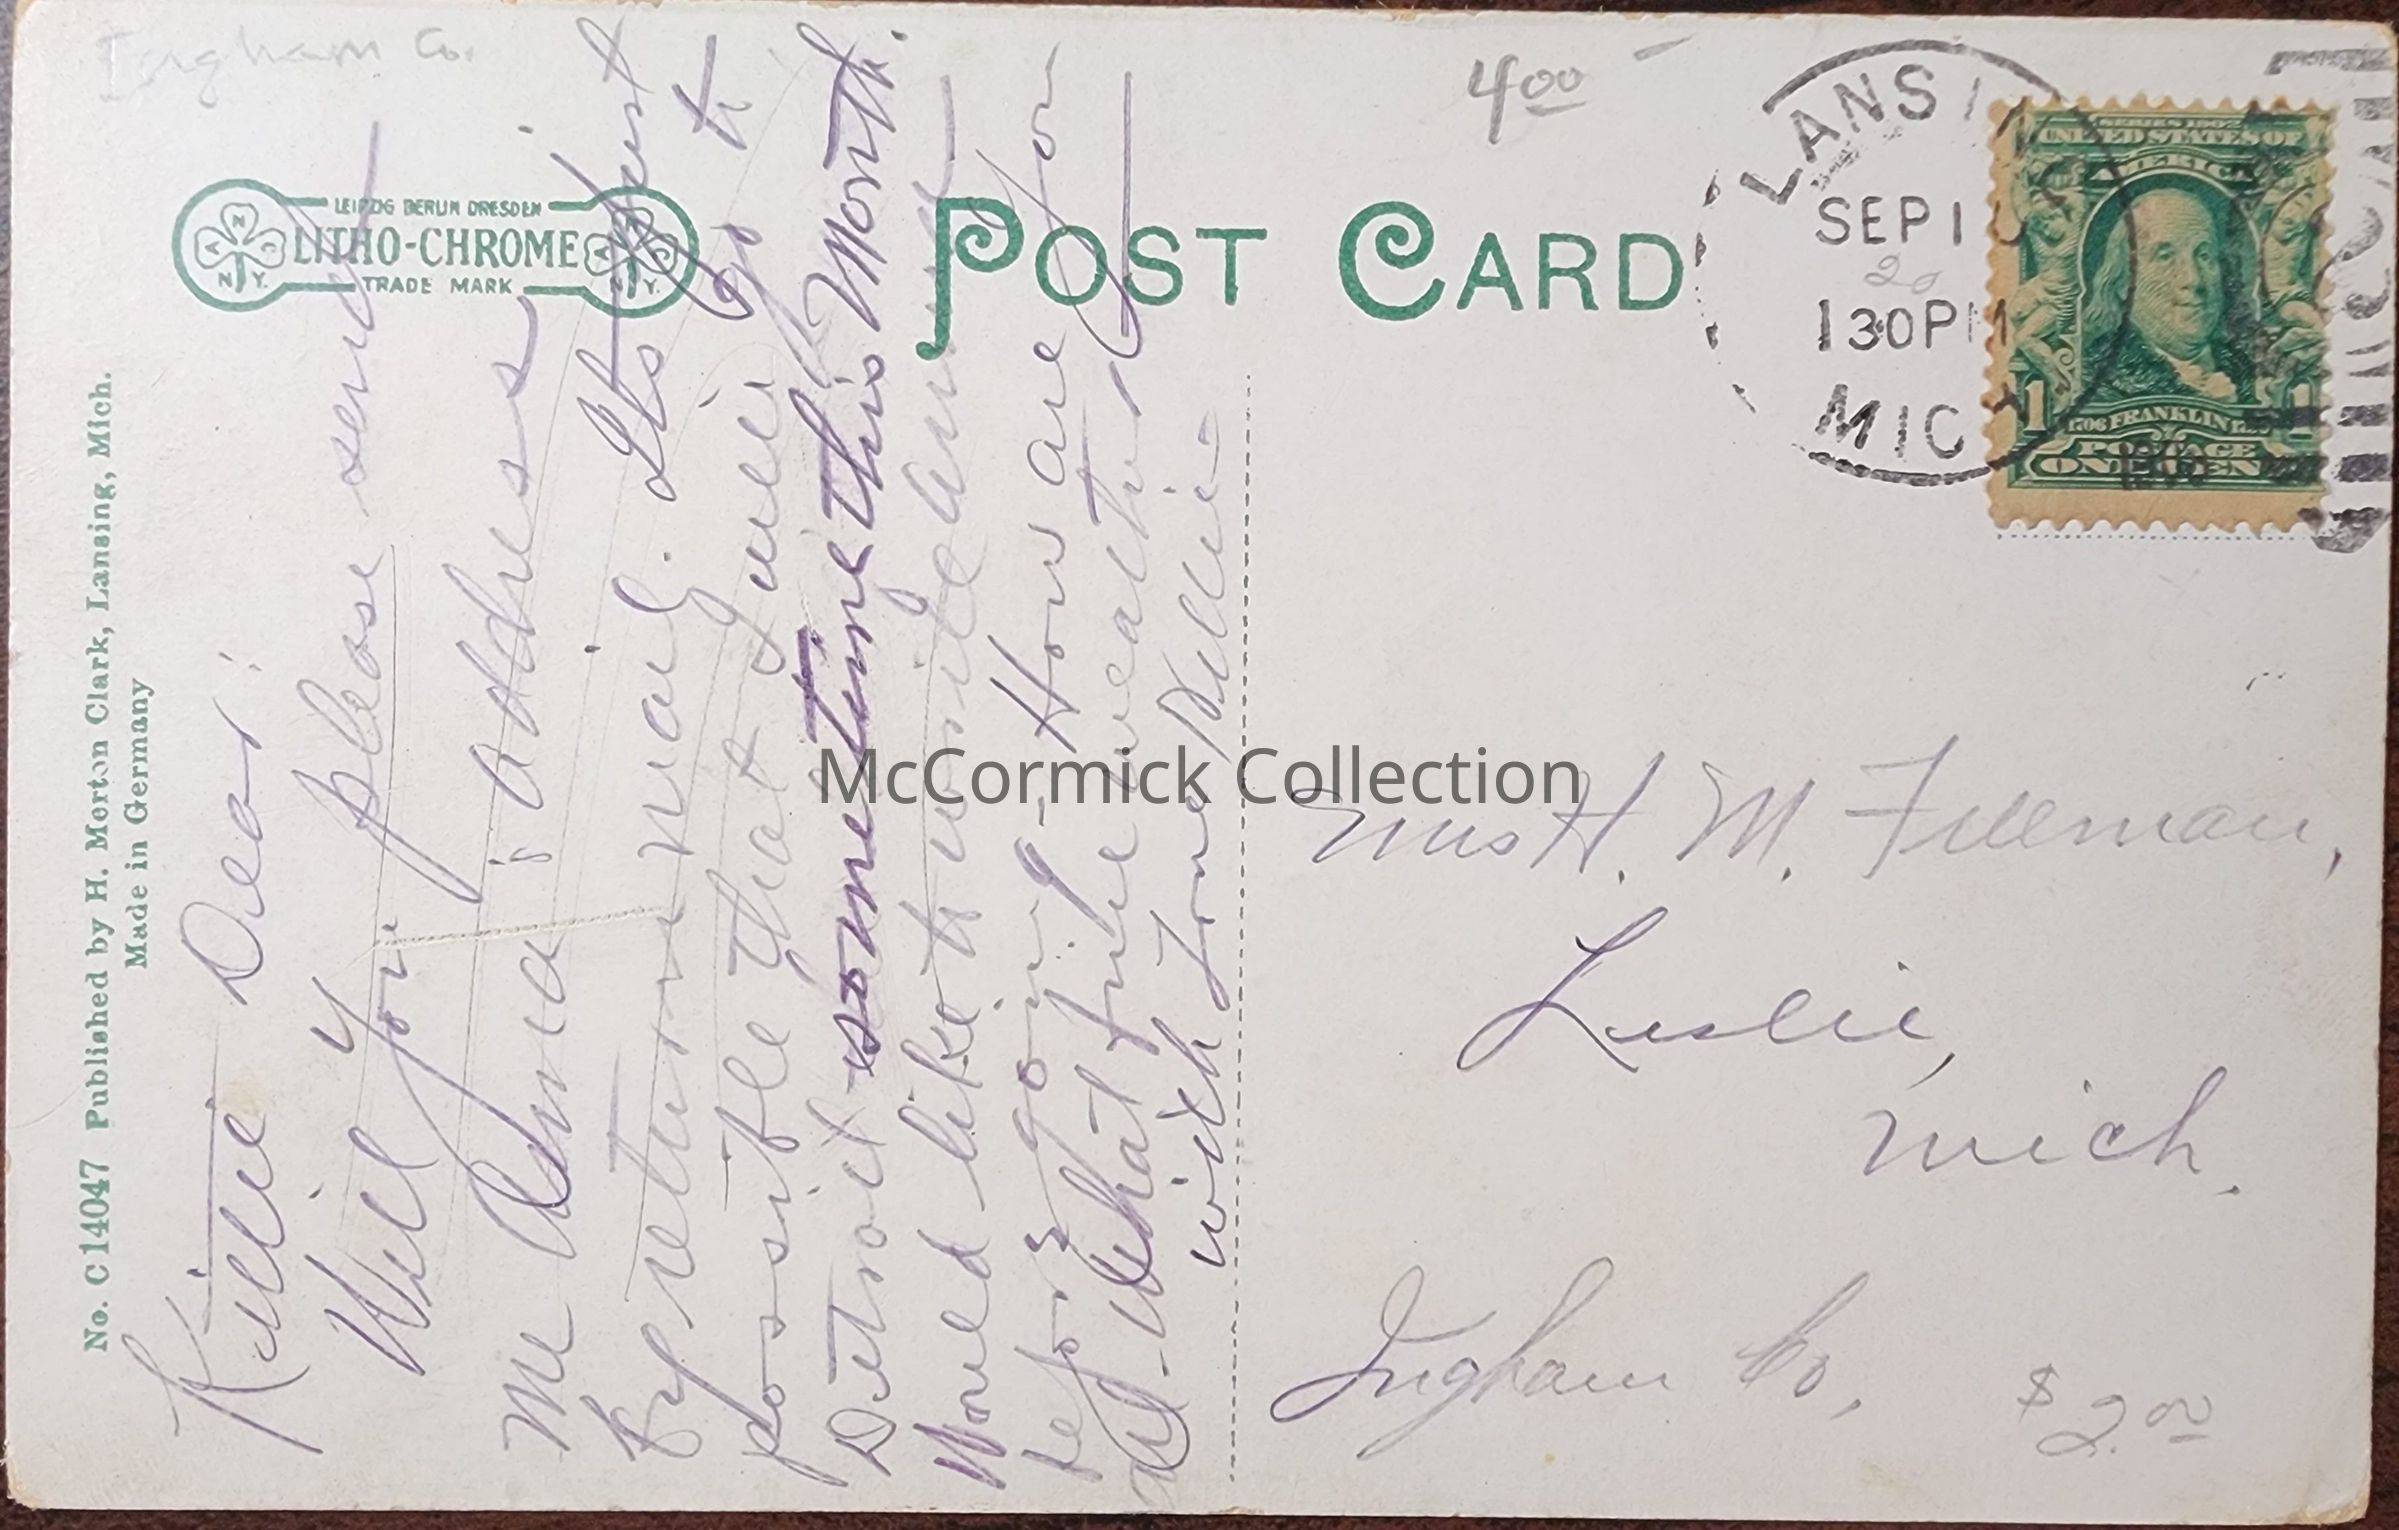 Ingham Co.
4 00
LEIPZIG BERLIN DRESDEN
LITHO-CHROME
TRADE MARK
N.Y.
POST CARD
LANSING
SEP 1
130 PM
MICH
SERIES 1902
UNITED STATES OF
AMERICA
1 1
1706 FRANKLIN
POSTAGE
ONE CENT
No. C14047 Published by H. Merton Clark, Lansing, Mich.
Made in Germany
Kittie Dear:
Will you please send
me Anna's address
by return mail. Its just
possible that I will go to
Detroit sometime this Month.
Would like to write Anna
before going - How are you
all - What fine weather
with love Nellie -
McCormick Collection
Mrs H. M. Freeman,
Leslie,
Mich.
Ingham Co,
$ 2.00